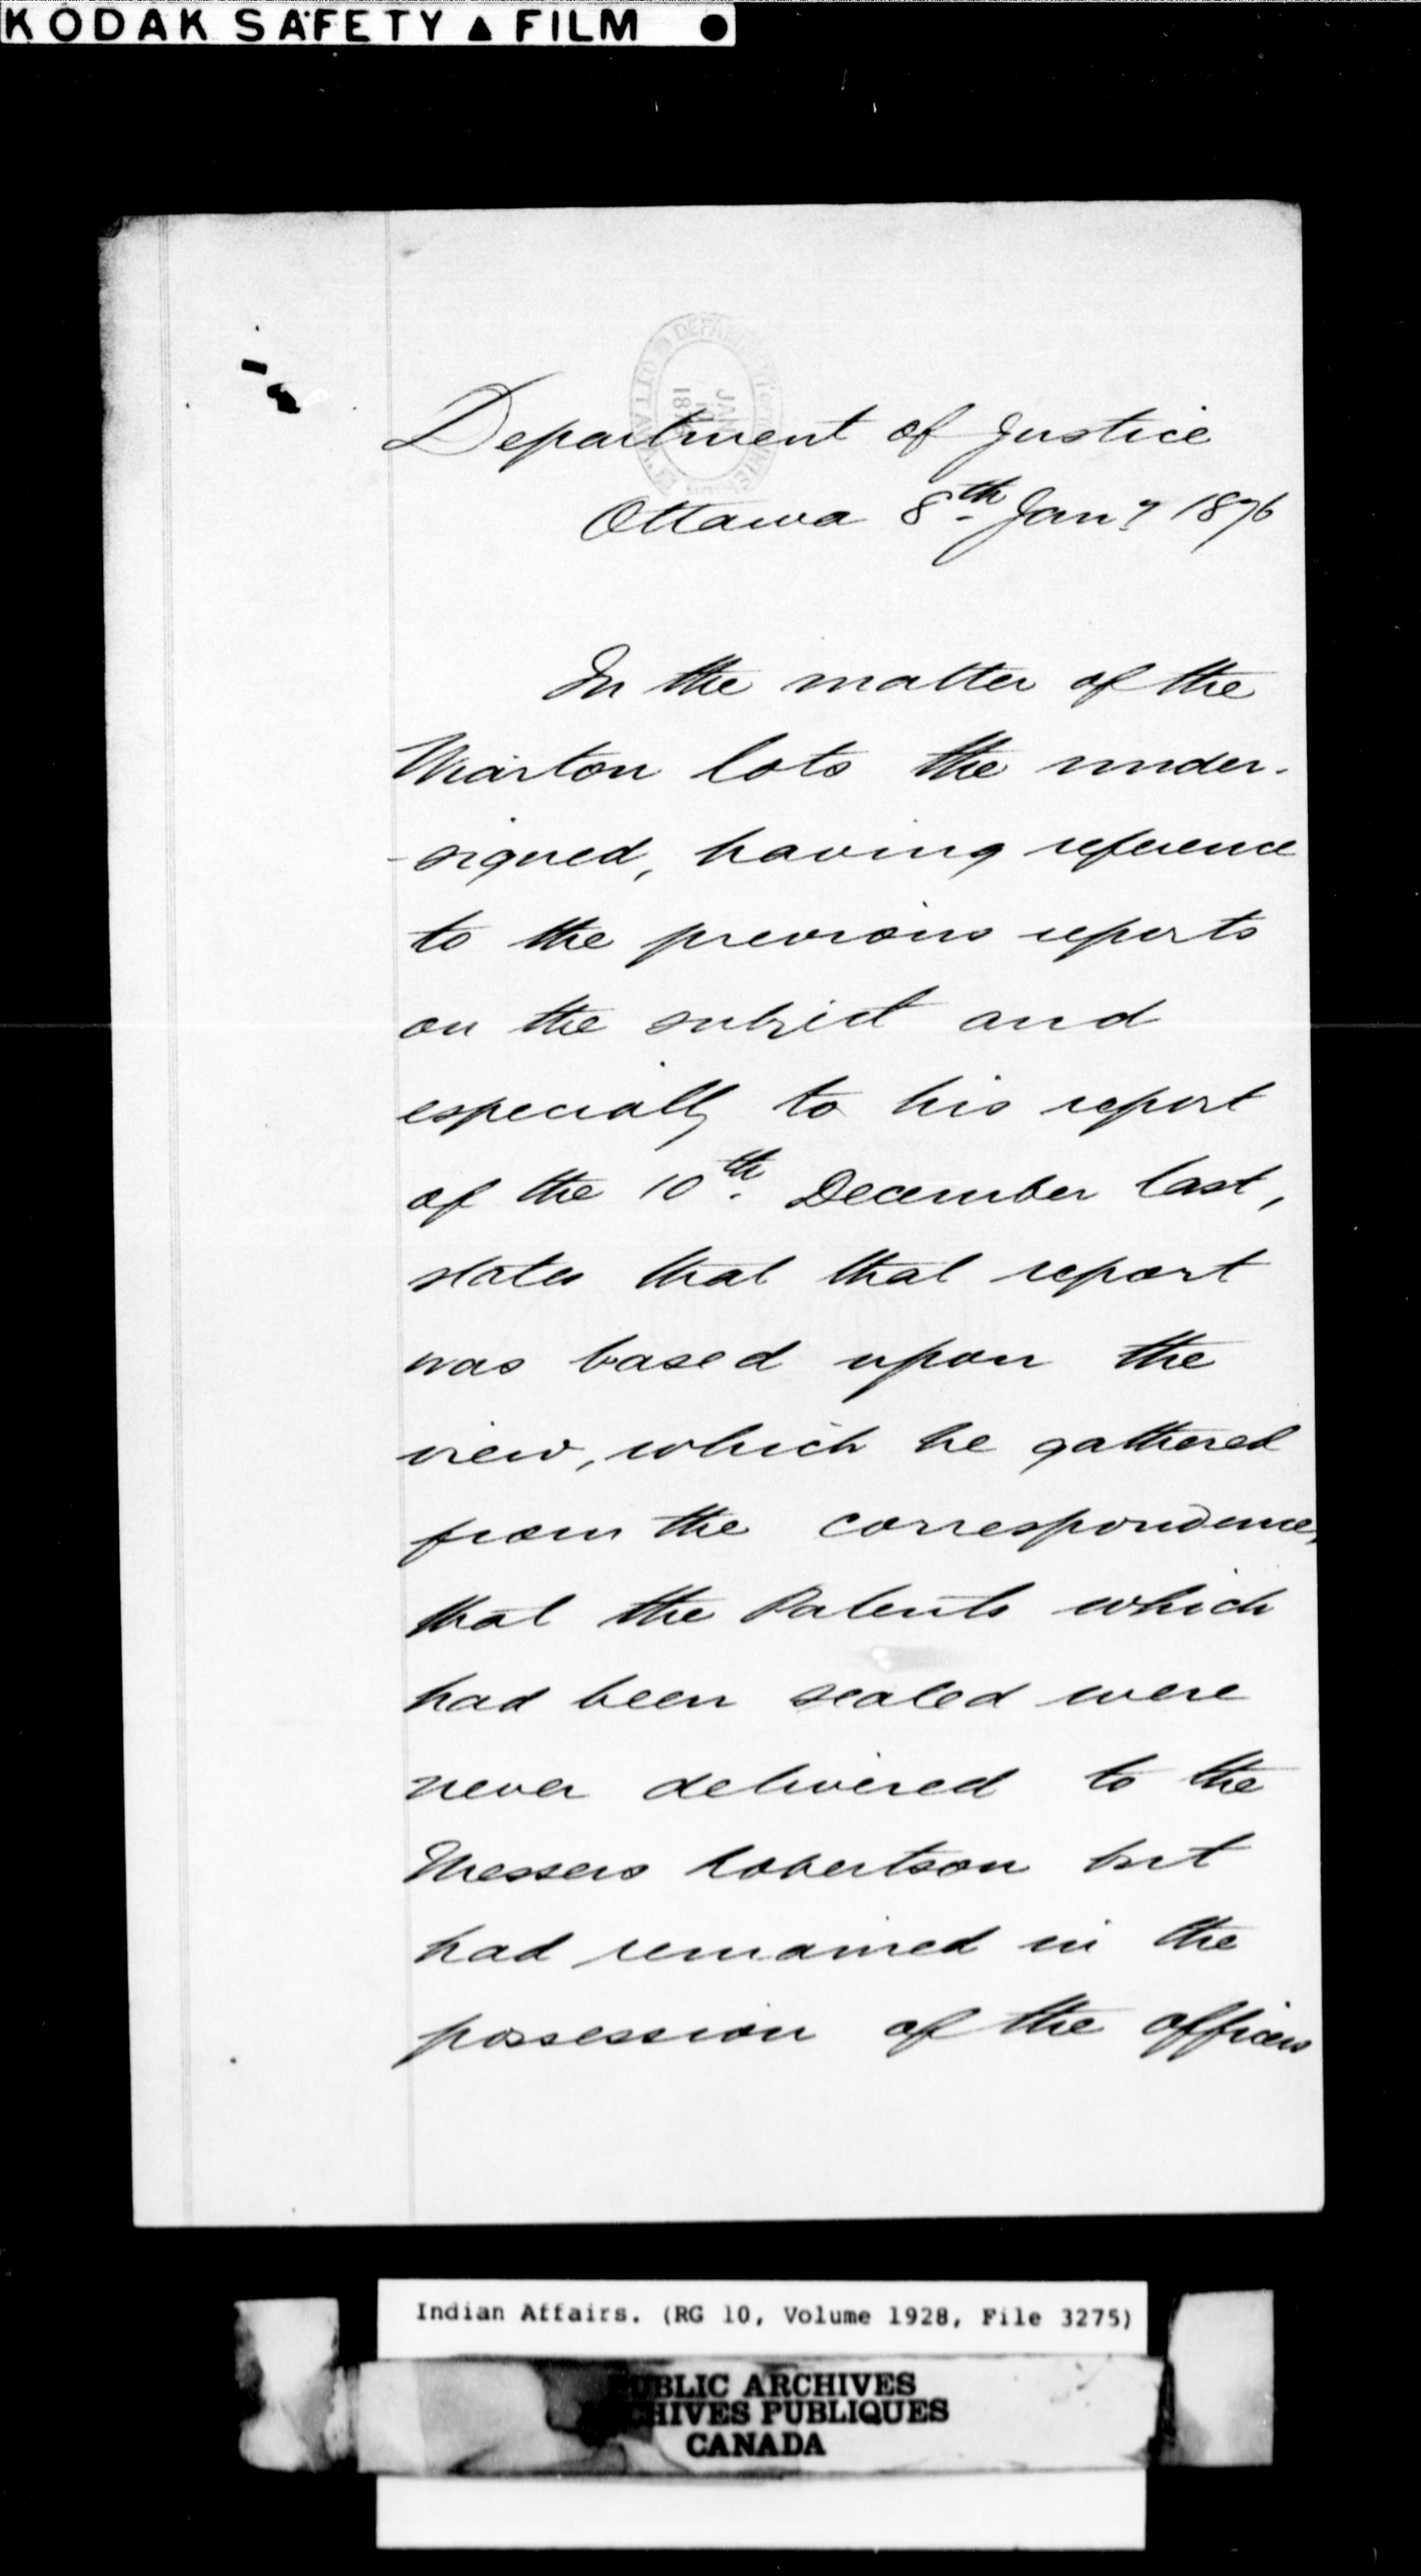 KODAK SAFETY ▲ FILM ●
JAN 10 1876
Department of Justice
Ottawa 8th Jany 1876
In the matter of the
Wiarton lots the under-
-signed, having reference
to the previous reports
on the subject and
especially to his report
of the 10th December last,
states that that report
was based upon the
view, which he gathered
from the correspondence,
that the Patents which
had been sealed were
never delivered to the
Messers Robertson but
had remained in the
possession of the officers
Indian Affairs. (RG 10, Volume 1928, File 3275)
PUBLIC ARCHIVES
ARCHIVES PUBLIQUES
CANADA